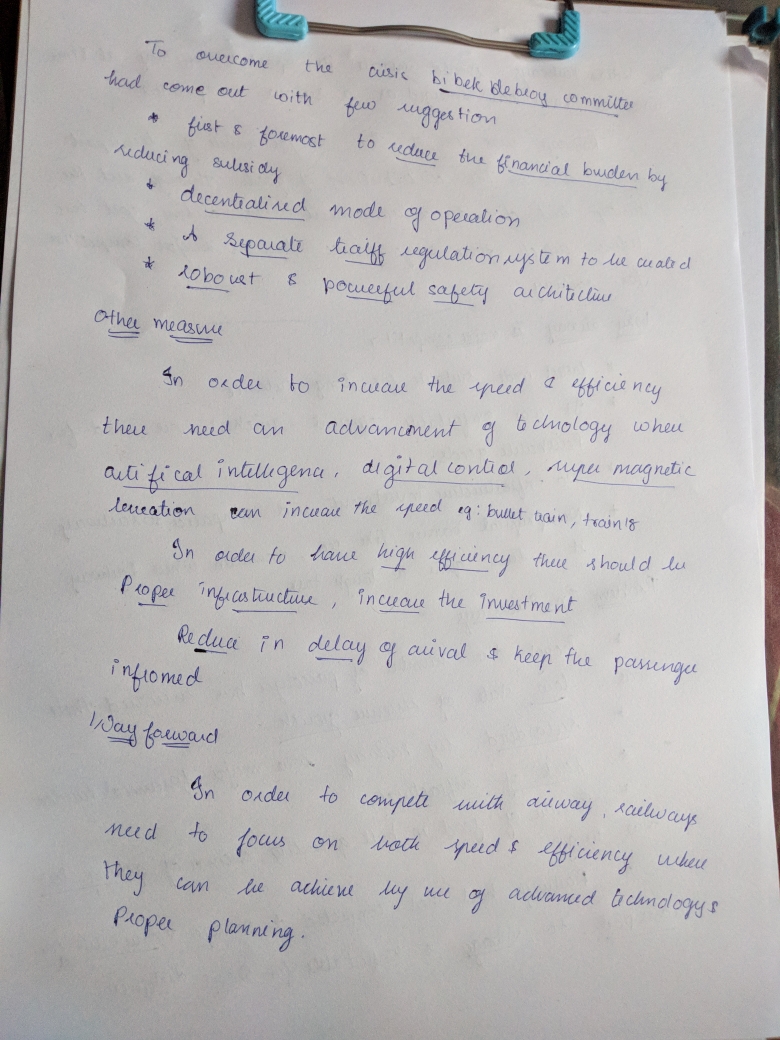 To overcome the crisis bibek debroy committee
had come out with few suggestion
* first & foremost to reduce the financial burden by
reducing subsidy
* decentralised mode of operation
* A separate tariff regulation system to be created
* roboust & powerful safety architecture
Other measure
In order to increase the speed & efficiency
there need an advancement of technology where
artifical intelligence, digital control, super magnetic
levication can increase the speed eg: bullet train, train 18
In order to have high efficiency there should be
Proper infrastructure, increase the investment
Reduce in delay of arival & keep the passenger
infromed
Way forward
In order to compete with airway, railways
need to focus on both speed & efficiency where
they can be achieve by use of advanced technology &
Proper planning.